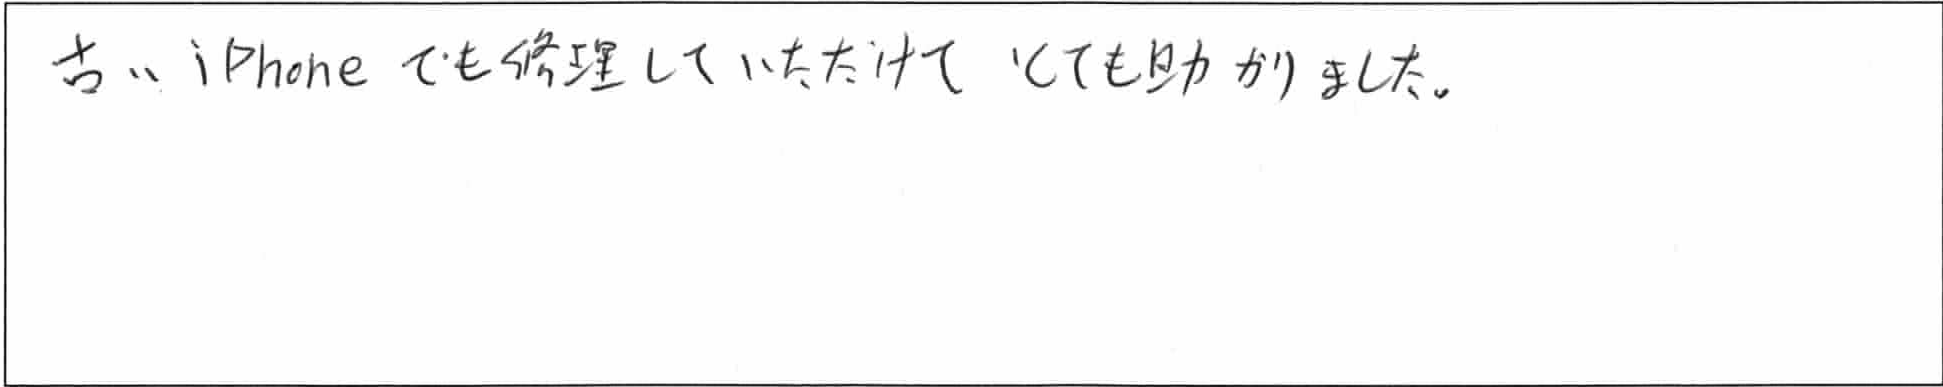 古い iPhone でも修理していただけて とても助かりました。